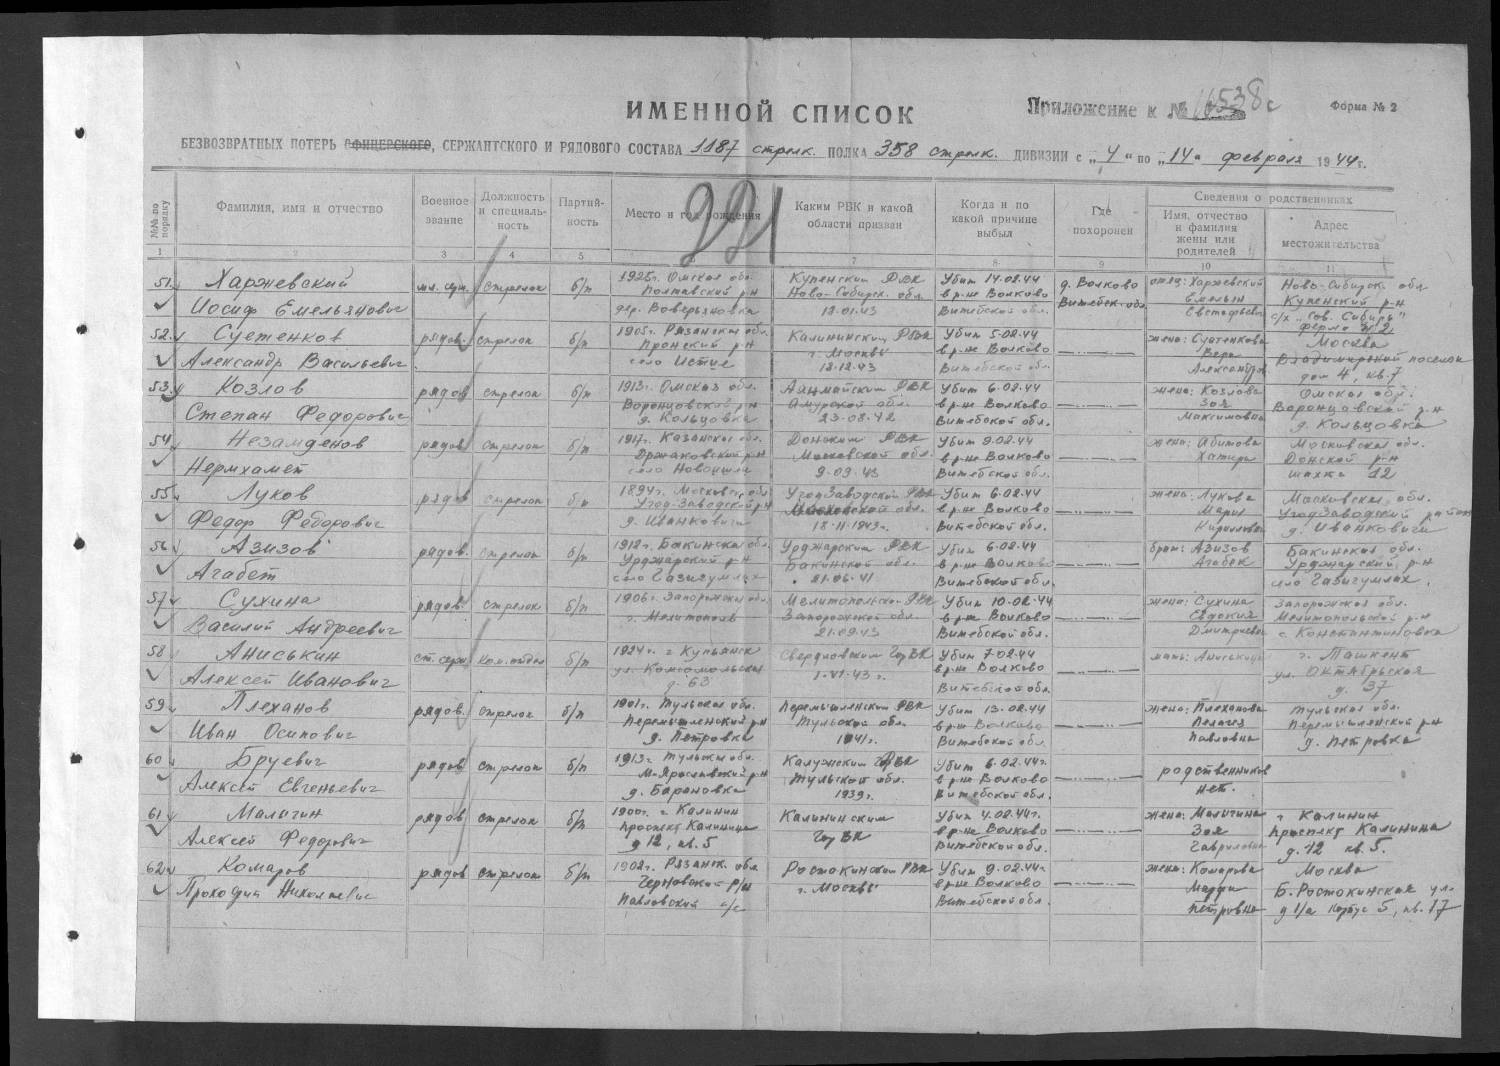 ИМЕННОЙ СПИСОК
Приложение к № 16538с
Форма № 2
БЕЗВОЗВРАТНЫХ ПОТЕРЬ ОФИЦЕРСКОГО, СЕРЖАНТСКОГО И РЯДОВОГО СОСТАВА 1187 стрелк. ПОЛКА 358 стрелк. ДИВИЗИИ с „4“ по „14“ февраля 1944 г.
221
№№ по порядку
Фамилия, имя и отчество
Военное звание
Должность и специальность
Партийность
Место и год рождения
Каким РВК и какой области призван
Когда и по какой причине выбыл
Где похоронен
Сведения о родственниках
Имя, отчество и фамилия жены или родителей
Адрес местожительства
1 2 3 4 5 7 8 9 10 11
51 Харжевский мл. сер. стрелок б/п 1925г. Омская обл. Купенским РВК Убит 14.02.44 д. Волково отец: Харжевский Ново-Сибирск. обл
Полтавский р-н Ново-Сибирск. обл. в р-не Волково Витебск. обл. Емельян Купенский р-н
Иосиф Емельянович дер. Воверьяновка 12.01.43 Витебской обл. Евстафьевич с/х "Сов. Сибирь"
ферма №2
52. Суетенков рядов. стрелок б/п 1905г. Рязанская обл. Калининским РВК Убит 5.02.44 жена: Суетенкова Москва
Пронский р-н г. Москвы в р-не Волково Вера Владимирский поселок
Александр Васильевич село Истие 12.12.43 Витебской обл. Александр. дом 4, кв. 7
53 Козлов рядов стрелок б/п 1913г. Омская обл. РВК Убит 6.02.44 жена: Козлова Омская обл.
Воронцовский р-н Амурской обл. в р-не Волково Зоя Воронцовский р-н
Степан Федорович д. Кольцовка 23.08.42 Витебской обл. Максимовна д. Кольцовка
54 Незамденов рядов стрелок б/п 1917г. Казанская обл. Донским РВК Убит 9.02.44 жена: Абитова Московская обл.
Московской обл. в р-не Волково Донской р-н
Нермхамет село 9.09.43 Витебской обл. шахта 12
55 Луков рядов стрелок б/п 1894г. Московск. обл УгодЗаводской РВК Убит 6.02.44 жена: Лукова Московская обл.
Угод-Заводский р-н Московской обл. в р-не Волково Мария УгодЗаводский район
Федор Федорович д. Иванковичи 18.11.1943г. Витебской обл. Кирилловна д. Иванковичи
56 Азизов рядов. стрелок б/п 1912г. Бакинская обл. Урджарским РВК Убит 6.02.44 брат: Азизов Бакинская обл.
Урджарский р-н Бакинской обл. в р-не Волково Агабек Урджарский р-н
Агабет село Газигумлах 21.06.41 Витебской обл. село Газигумлах.
57 Сухина рядов. стрелок б/п 1906г. Запорожская обл. Мелитопольским РВК Убит 10.02.44 жена: Сухина Запорожская обл.
г. Мелитополь Запорожской обл. в р-не Волково Евдокия Мелитопольский р-н
Василий Андреевич 21.09.43 Витебской обл. Дмитриевна с Константиновка
58 Аниськин ст. серж. б/п 1924г. г Купянск Свердловским ГорВК Убит 7.02.44 мать: г. Ташкент
ул. Комсомольская 1.VI.43г. в р-не Волково ул. Октябрьская
Алексей Иванович д. 63 Витебской обл. д. 37
59 Плеханов рядов. стрелок б/п 1901г. Тульская обл. Перемышленским РВК Убит 13.02.44 жена: Плеханова Тульская обл.
Перемышленский р-н Тульской обл. в р-не Волково Пелагея Перемышленский р-н
Иван Осипович д. Петровка 1941г. Витебской обл. Павловна д. Петровка
60 Бруевич рядов стрелок б/п 1913г. Тульская обл. Калужским ГВК Убит 6.02.44г. родственников
М-Ярославский р-н Тульской обл. в р-не Волково нет.
Алексей Евгеньевич д. Барановка 1939г. Витебской обл.
61 Малыгин рядов стрелок б/п 1900г. г Калинин Калининским Убит 4.02.44г. жена: Малыгина г Калинин
проспект Калинина ГорВК в р-не Волково Зоя проспект Калинина
Алексей Федорович д 12, кв. 5 Витебской обл. Гавриловна д. 12 кв. 5.
62 Комаров рядов стрелок б/п 1902г. Рязанск. обл Ростокинским РВК Убит 9.02.44г. жена: Комарова Москва
Черновский р/н г. Москвы в р-не Волково Марфа Б. Ростокинская ул.
Николаевич Павловский с/с Витебской обл. Петровна д 1/а корпус 5, кв. 17